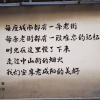 每座城市都有一条老街
每条老街都有一段难忘的记忆
时光在这里慢了下来
走过中山街的烟火
我们安享老咸阳的美好